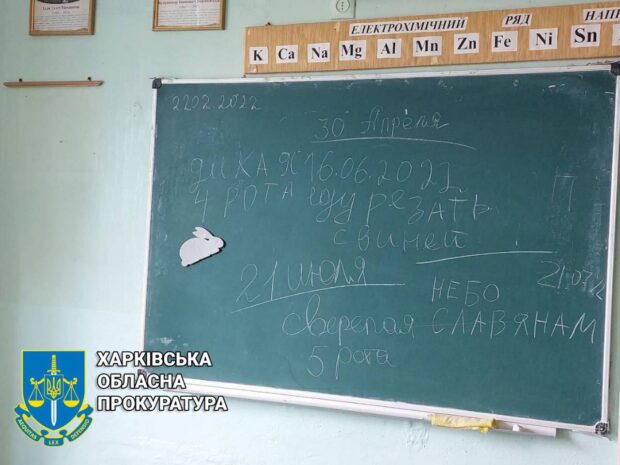 ЕЛЕКТРОХІМІЧНИЙ РЯД НАПР
K Ca Na Mg Al Mn Zn Fe Ni Sn
2202.2022
30 Апреля
ДИКАЯ 16.06.2022
4 РОТА ИДУ РЕЗАТЬ
свиней
П
21 июля
21.07.2
НЕБО
Сверепая СЛАВЯНАМ
5 рота
ХАРКІВСЬКА
ОБЛАСНА
ПРОКУРАТУРА
AEQUITAS LEX